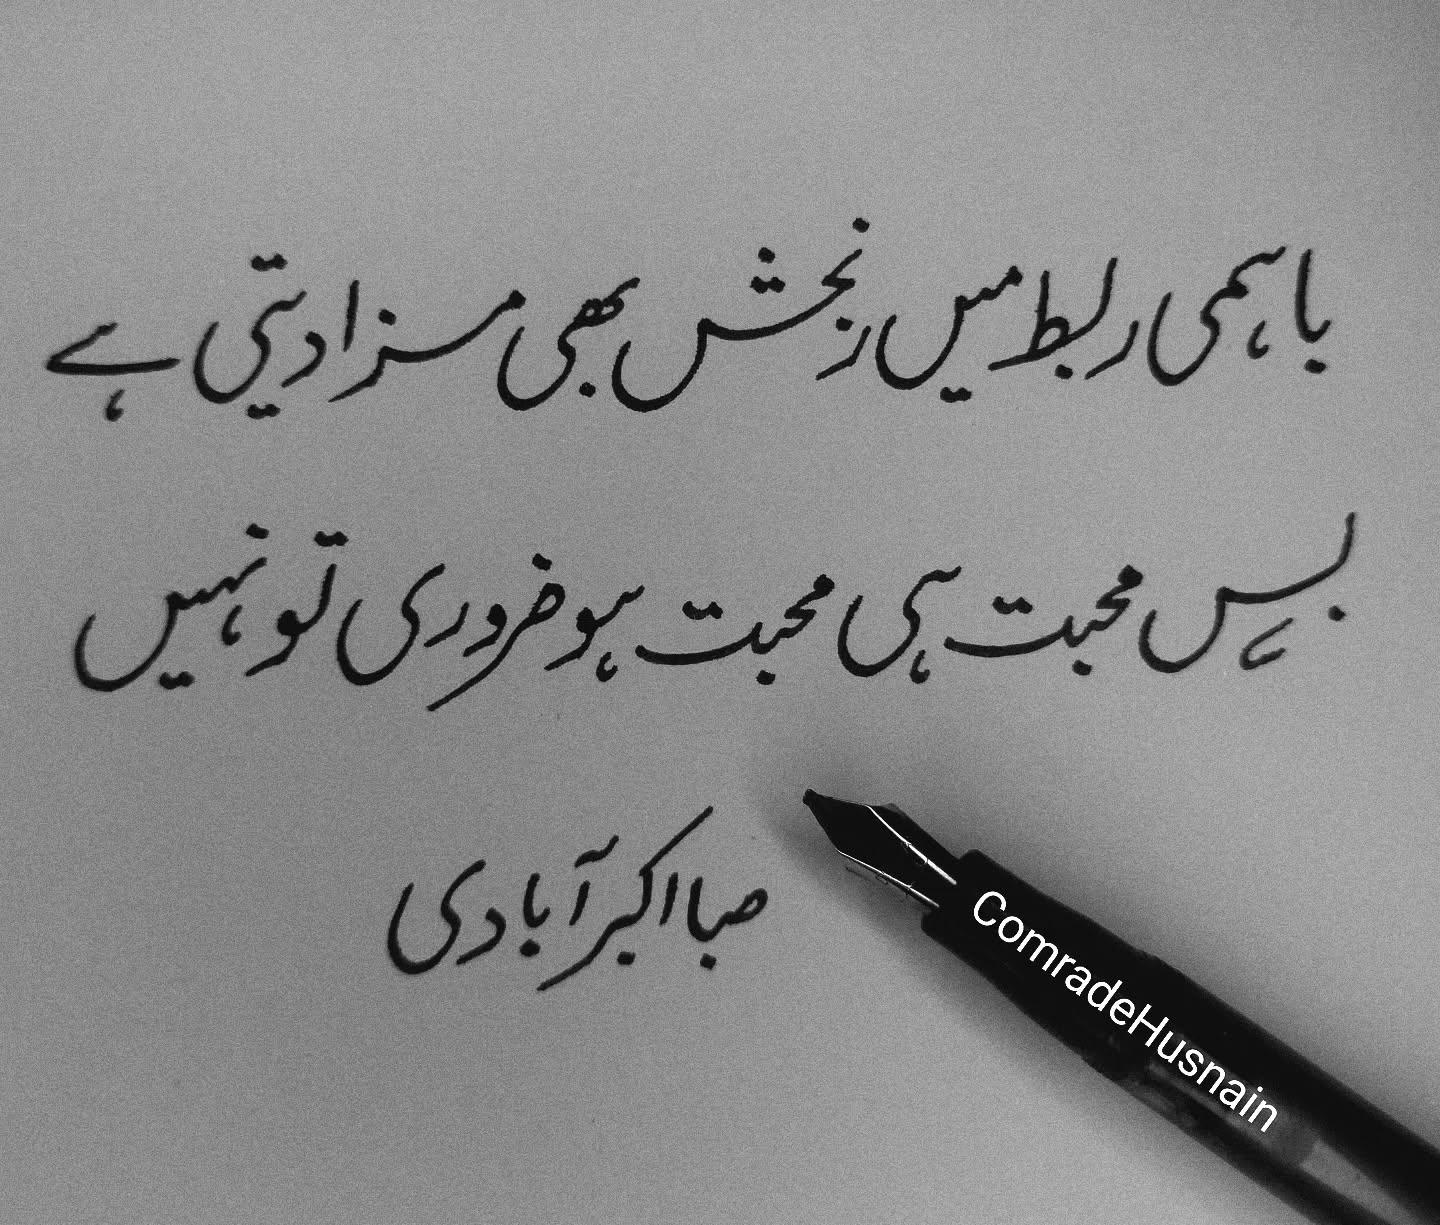 باہمی ربط میں رنجش بھی مزا دیتی ہے
بس محبت ہی محبت ہو ضروری تو نہیں
صبا اکبر آبادی
ComradeHusnain